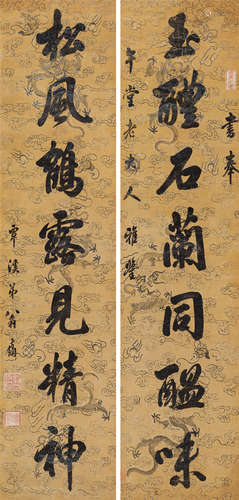 書奉
玉醴石蘭同醞味
午堂老大人雅鑒
松風鶴露見精神
覃溪弟翁方綱